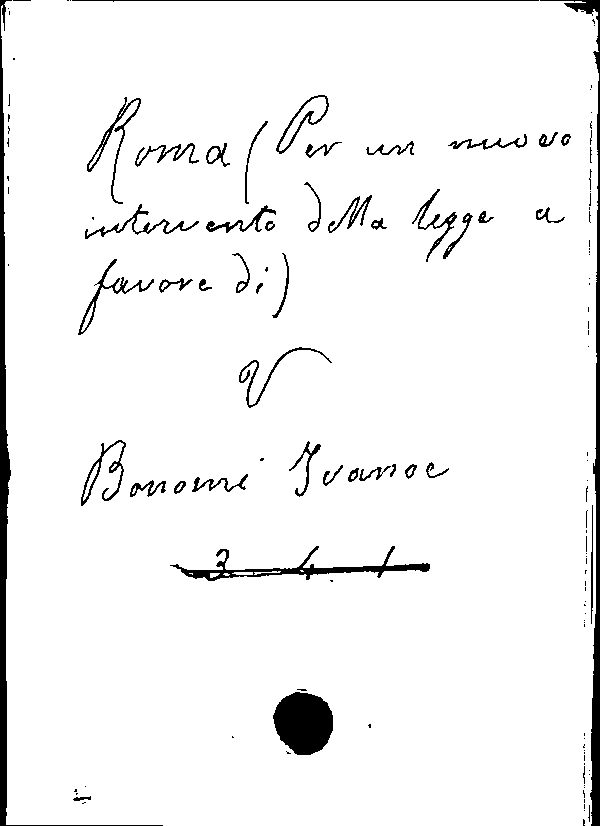 Roma (Per un nuovo
intervento della legge a
favore di)
V
Bonomi Ivanoe
341